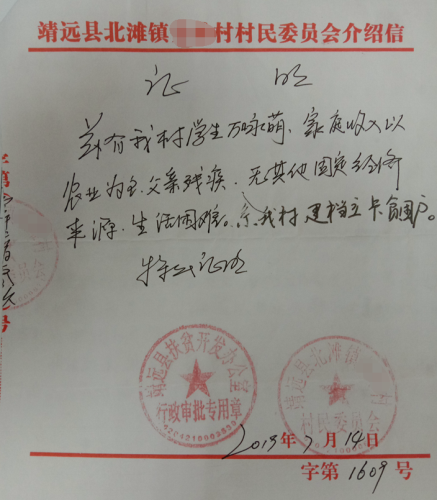 靖远县北滩镇村村民委员会介绍信
证 明
兹有我村学生万咏萌，家庭收入以
农业为主，父亲残疾，无其他固定经济
来源，生活困难。系我村建档立卡贫困户。
特此证明
靖远县扶贫开发办公室
行政审批专用章
靖远县北滩镇村
村民委员会
2019年7月14日
字第1609号